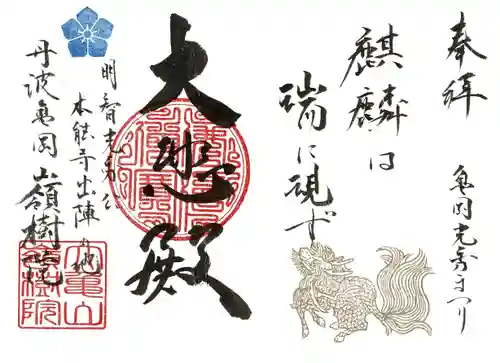 奉拝
亀岡光秀まつり
麒麟は
瑞に現ず
大悲殿
明智光秀公
本能寺出陣の地
丹波亀岡 嶺樹院